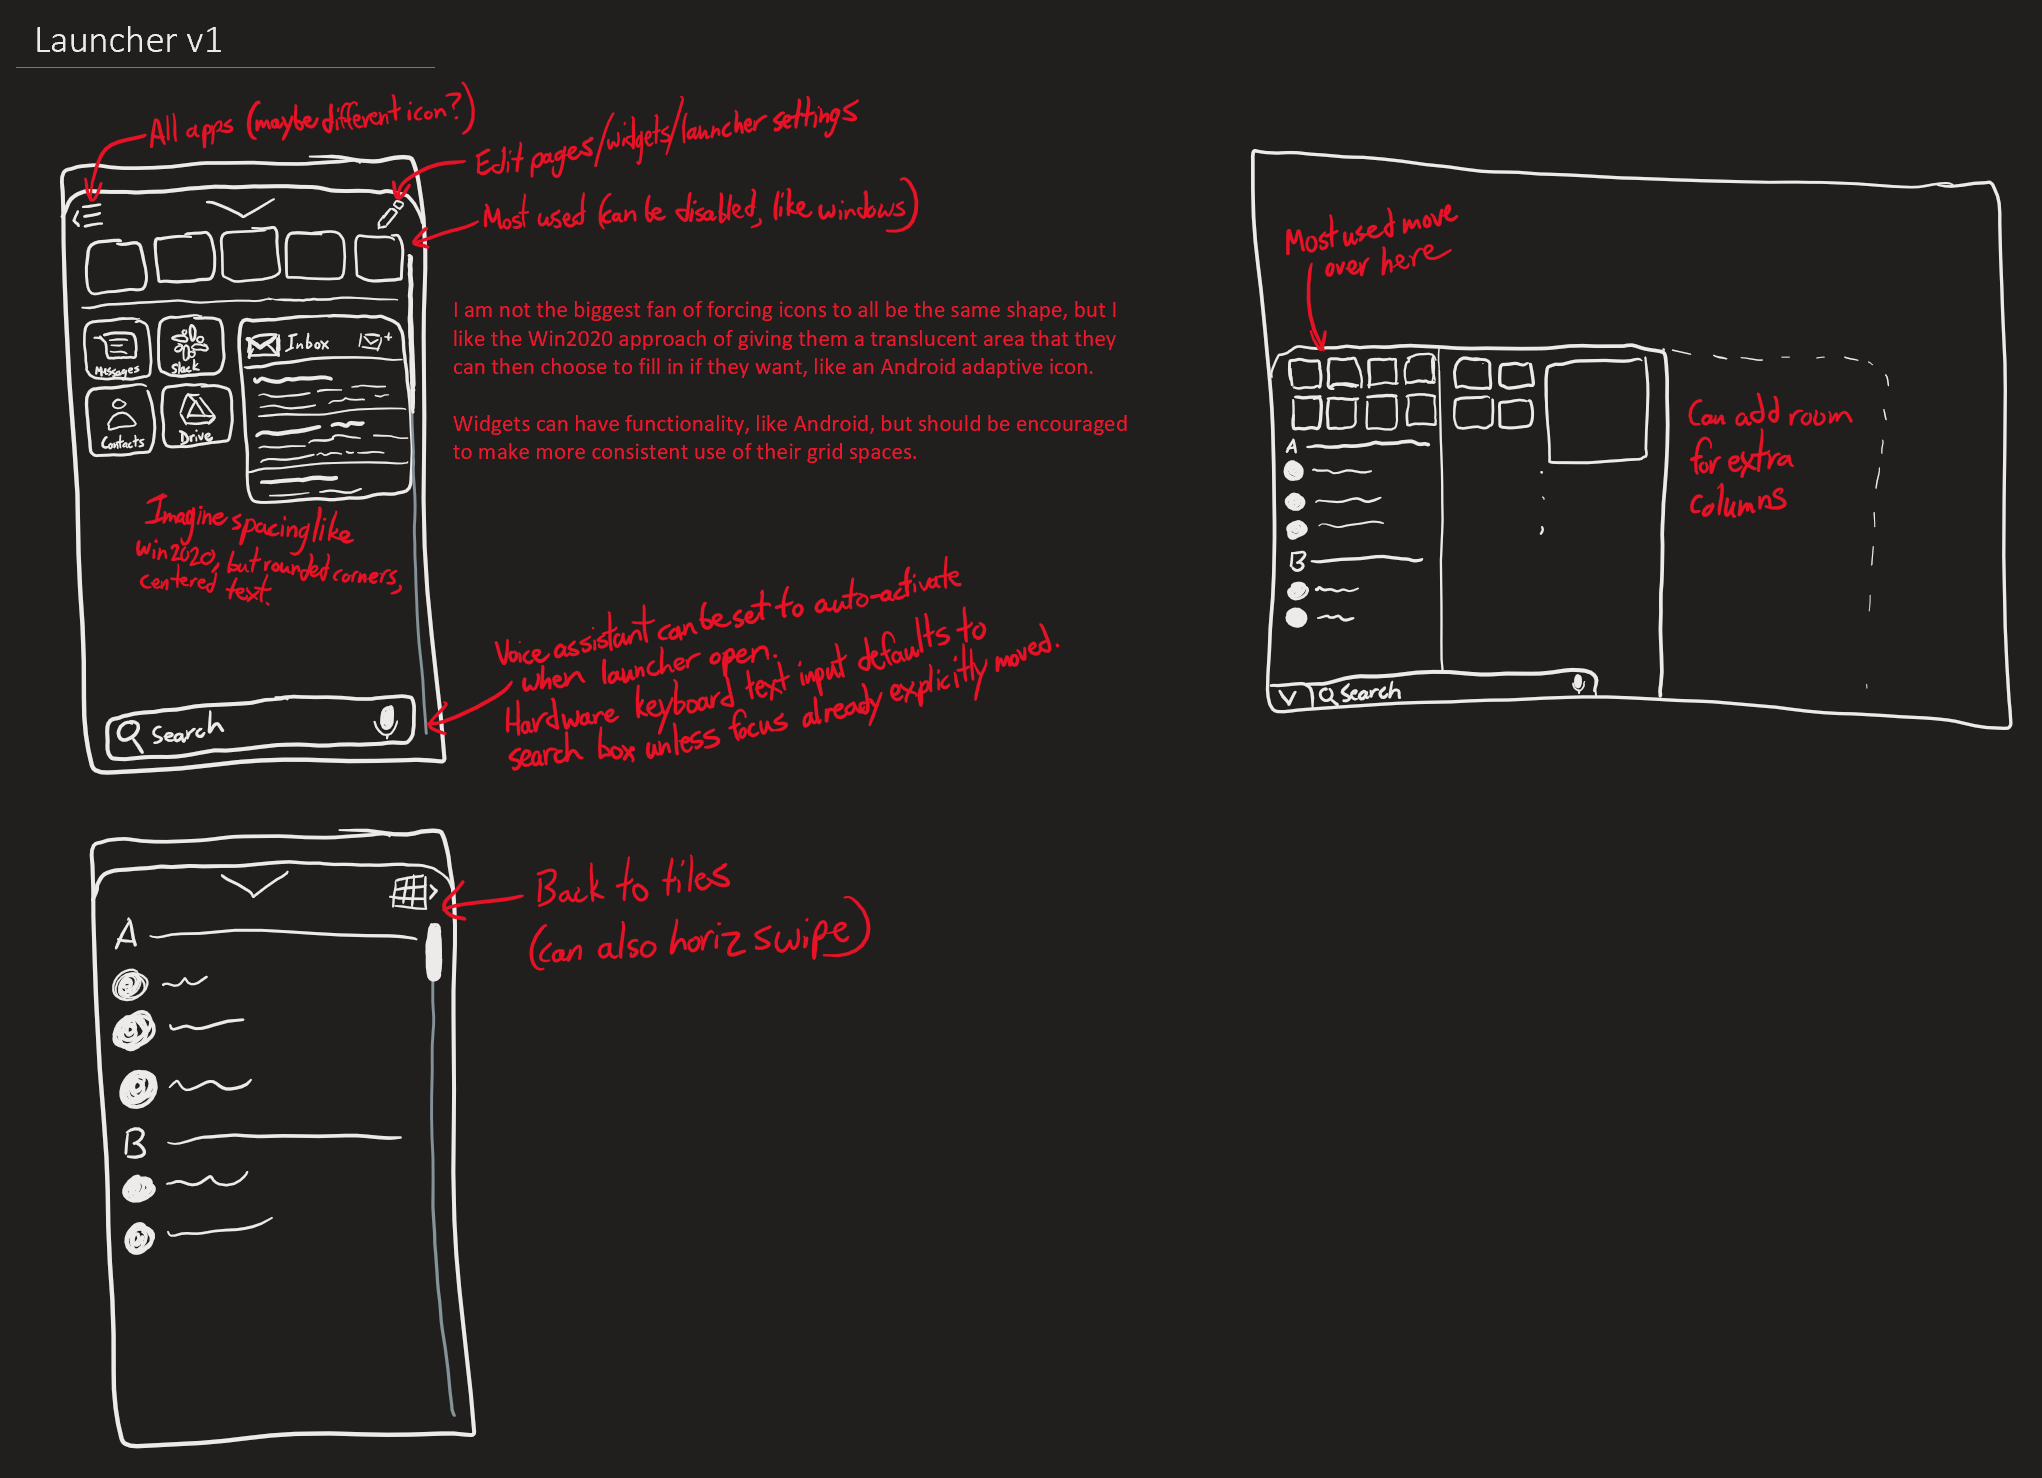 Launcher v1
All apps (maybe different icon?)
Edit pages/widgets/launcher settings
Most used (can be disabled, like windows)
Messages
Slack
Contacts
Drive
Inbox
I am not the biggest fan of forcing icons to all be the same shape, but I
like the Win2020 approach of giving them a translucent area that they
can then choose to fill in if they want, like an Android adaptive icon.
Widgets can have functionality, like Android, but should be encouraged
to make more consistent use of their grid spaces.
Imagine spacing like
win2020, but rounded corners,
centered text.
Voice assistant can be set to auto-activate
when launcher open.
Hardware keyboard text input defaults to
search box unless focus already explicitly moved.
Search
Most used move
over here
A
B
Search
Can add room
for extra
columns
Back to tiles
(can also horiz swipe)
A
B